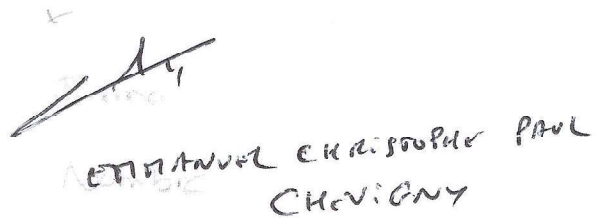 EMMANUEL CHRISTOPHE PAUL
CHEVIGNY